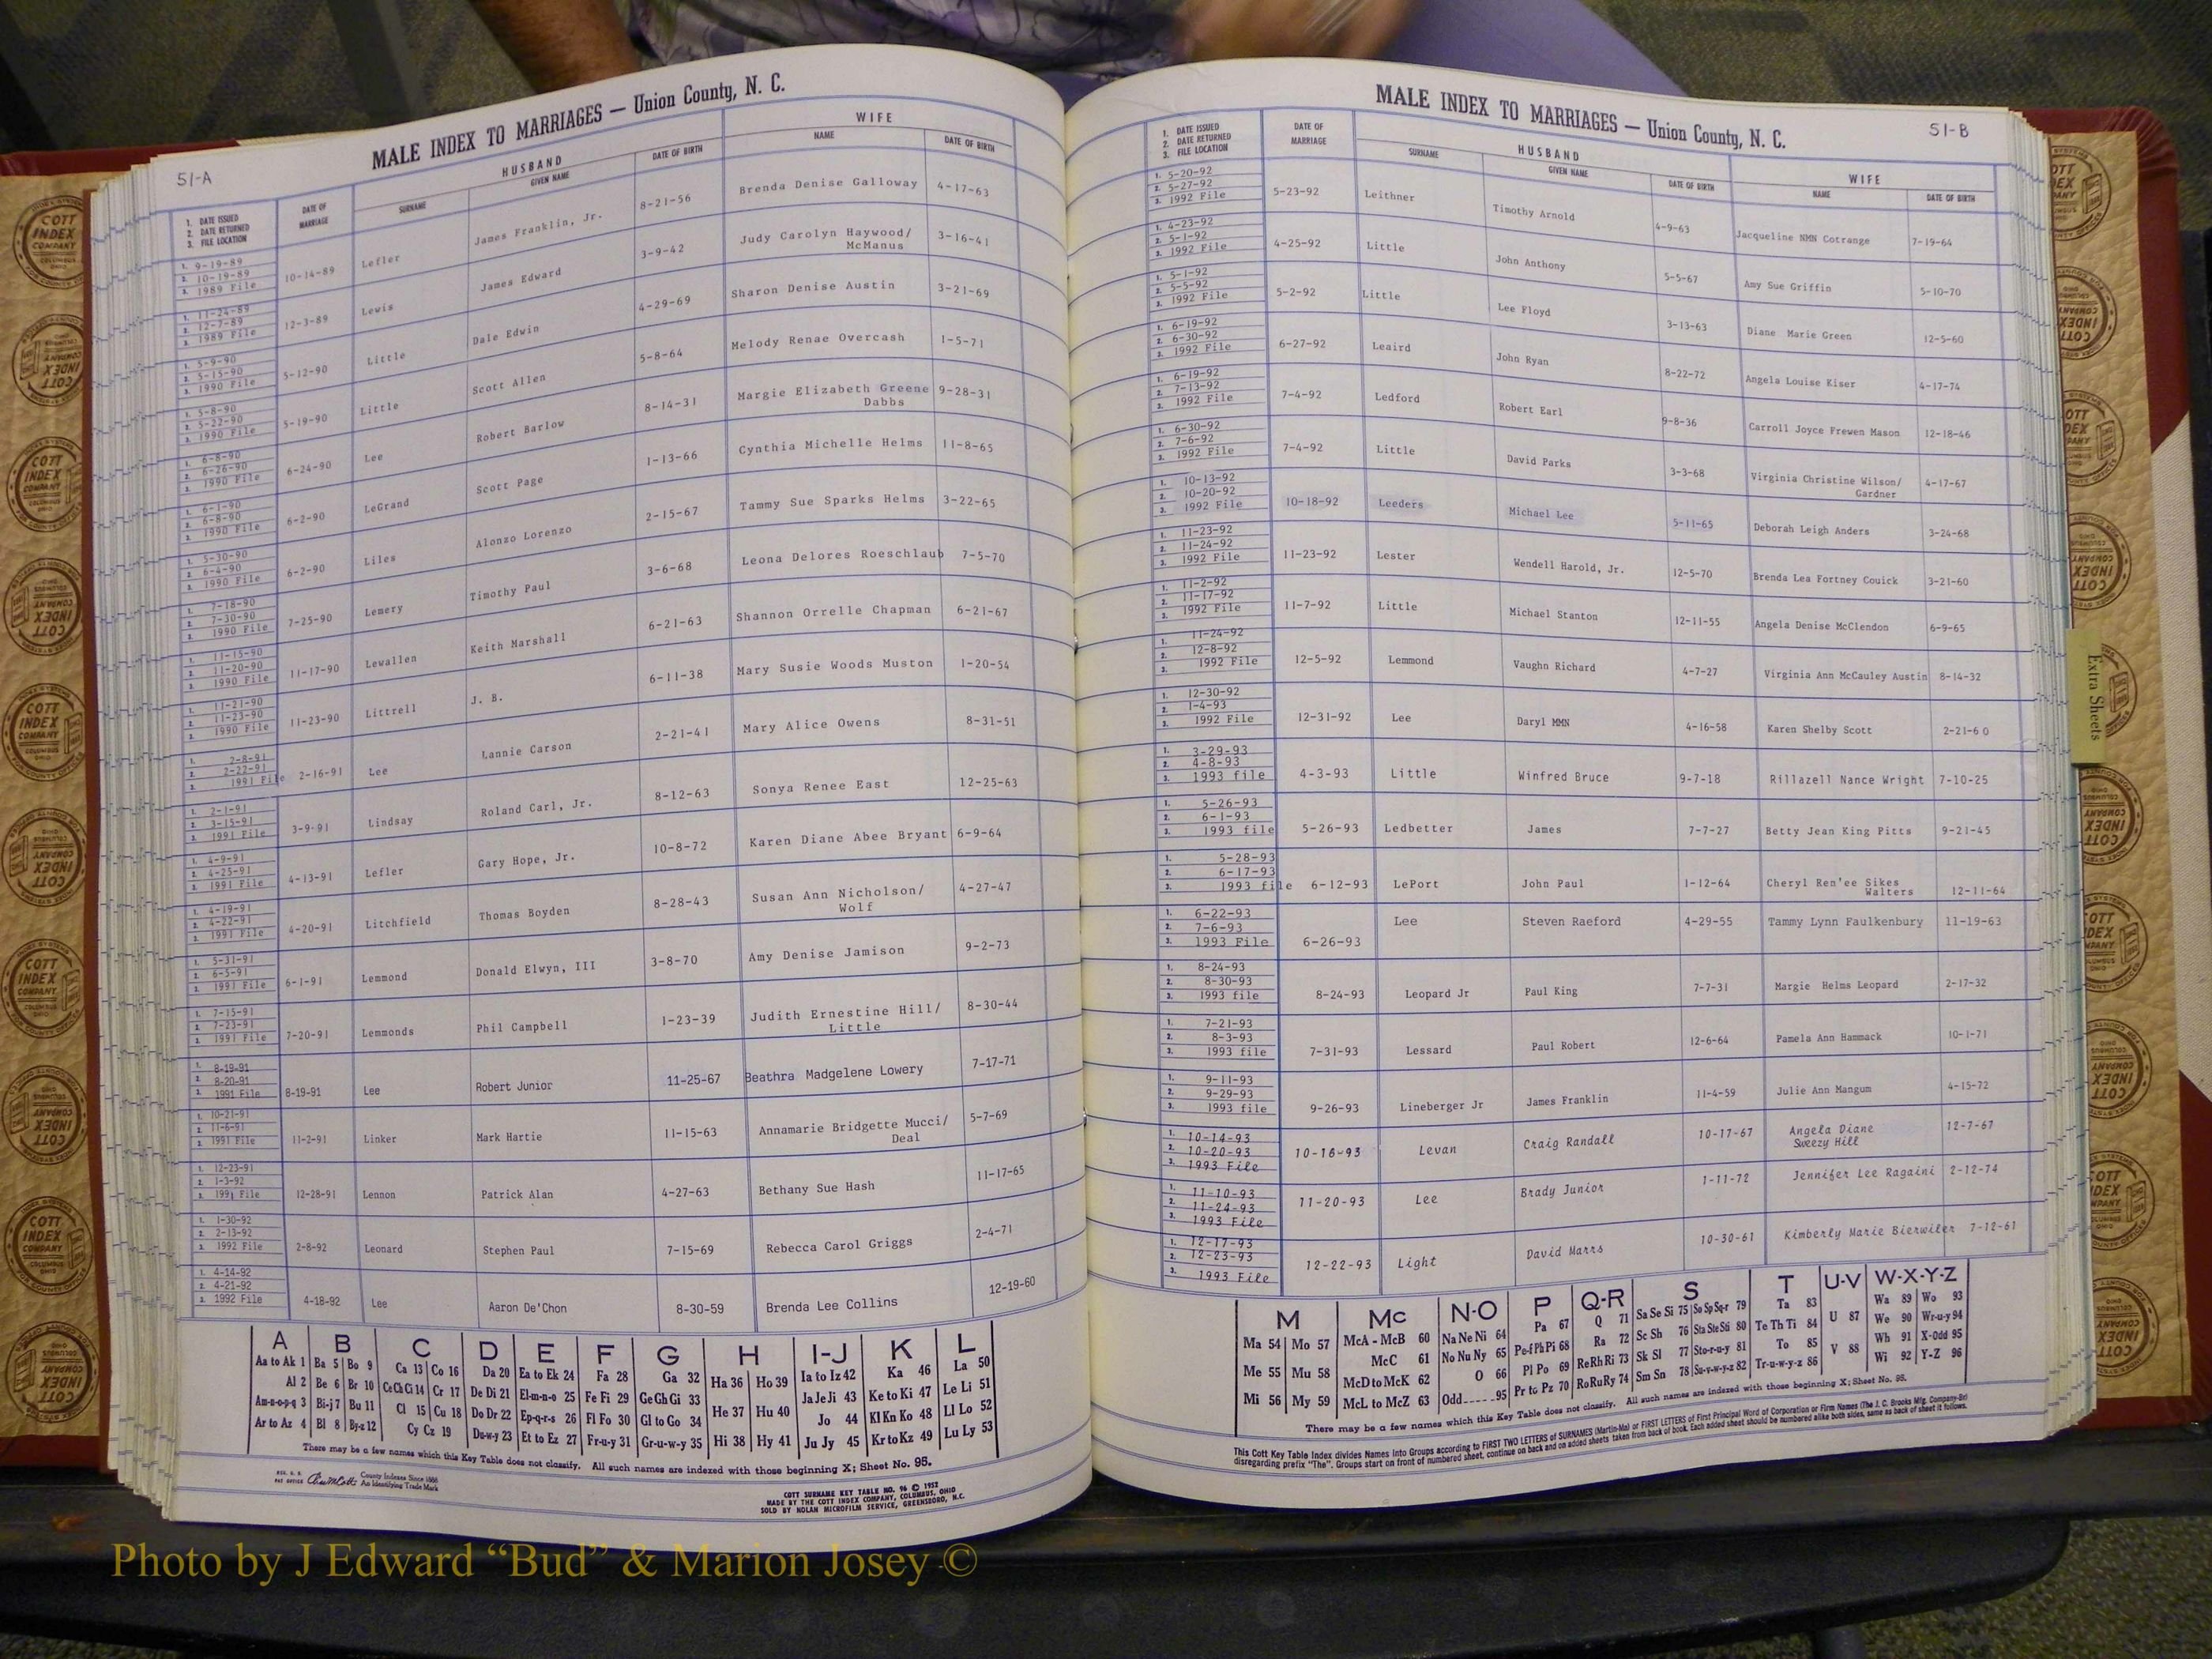 MALE INDEX TO MARRIAGES — Union County, N. C.
51-A
1. DATE ISSUED
2. DATE RETURNED
3. FILE LOCATION
DATE OF MARRIAGE
HUSBAND
SURNAME
GIVEN NAME
DATE OF BIRTH
WIFE
NAME
DATE OF BIRTH
1. 9-19-89
2. 10-19-89
3. 1989 File
10-14-89 Lefler James Franklin, Jr. 8-21-56 Brenda Denise Galloway 4-17-63
1. 11-24-89
2. 12-7-89
3. 1989 File
12-3-89 Lewis James Edward 3-9-42 Judy Carolyn Haywood/ 3-16-41
McManus
1. 5-9-90
2. 5-15-90
3. 1990 File
5-12-90 Little Dale Edwin 4-29-69 Sharon Denise Austin 3-21-69
1. 5-8-90
2. 5-22-90
3. 1990 File
5-19-90 Little Scott Allen 5-8-64 Melody Renae Overcash 1-5-71
1. 6-8-90
2. 6-26-90
3. 1990 File
6-24-90 Lee Robert Barlow 8-14-31 Margie Elizabeth Greene 9-28-31
Dabbs
1. 6-1-90
2. 6-8-90
3. 1990 File
6-2-90 LeGrand Scott Page 1-13-66 Cynthia Michelle Helms 11-8-65
1. 5-30-90
2. 6-4-90
3. 1990 File
6-2-90 Liles Alonzo Lorenzo 2-15-67 Tammy Sue Sparks Helms 3-22-65
1. 7-18-90
2. 7-30-90
3. 1990 File
7-25-90 Lemery Timothy Paul 3-6-68 Leona Delores Roeschlaub 7-5-70
1. 11-15-90
2. 11-20-90
3. 1990 File
11-17-90 Lewallen Keith Marshall 6-21-63 Shannon Orrelle Chapman 6-21-67
1. 11-21-90
2. 11-23-90
3. 1990 File
11-23-90 Littrell J. B. 6-11-38 Mary Susie Woods Muston 1-20-54
1. 2-8-91
2. 2-22-91
3. 1991 File
2-16-91 Lee Lannie Carson 2-21-41 Mary Alice Owens 8-31-51
1. 2-1-91
2. 3-15-91
3. 1991 File
3-9-91 Lindsay Roland Carl, Jr. 8-12-63 Sonya Renee East 12-25-63
1. 4-9-91
2. 4-25-91
3. 1991 File
4-13-91 Lefler Gary Hope, Jr. 10-8-72 Karen Diane Abee Bryant 6-9-64
1. 4-19-91
2. 4-22-91
3. 1991 File
4-20-91 Litchfield Thomas Boyden 8-28-43 Susan Ann Nicholson/ 4-27-47
Wolf
1. 5-31-91
2. 6-5-91
3. 1991 File
6-1-91 Lemmond Donald Elwyn, III 3-8-70 Amy Denise Jamison 9-2-73
1. 7-15-91
2. 7-23-91
3. 1991 File
7-20-91 Lemmonds Phil Campbell 1-23-39 Judith Ernestine Hill/ 8-30-44
Little
1. 8-19-91
2. 8-20-91
3. 1991 File
8-19-91 Lee Robert Junior 11-25-67 Beathra Madgelene Lowery 7-17-71
1. 10-21-91
2. 11-6-91
3. 1991 File
11-2-91 Linker Mark Hartie 11-15-63 Annamarie Bridgette Mucci/ 5-7-69
Deal
1. 12-23-91
2. 1-3-92
3. 1991 File
12-28-91 Lennon Patrick Alan 4-27-63 Bethany Sue Hash 11-17-65
1. 1-30-92
2. 2-13-92
3. 1992 File
2-8-92 Leonard Stephen Paul 7-15-69 Rebecca Carol Griggs 2-4-71
1. 4-14-92
2. 4-21-92
3. 1992 File
4-18-92 Lee Aaron De'Chon 8-30-59 Brenda Lee Collins 12-19-60
A B C D E F G H I-J K L
Aa to Ak 1 Ba 5 Bo 9 Ca 13 Co 16 Da 20 Ea to Ek 24 Fa 28 Ga 32 Ha 36 Ho 39 Ia to Iz 42 Ka 46 La 50
Al 2 Be 6 Br 10 Ce Ch Ci 14 Cr 17 De Di 21 El-m-n-o 25 Fe Fi 29 Ge Gh Gi 33 He 37 Hu 40 Ja Je Ji 43 Ke to Ki 47 Le Li 51
Am-n-o-p-q 3 Bi-j 7 Bu 11 Cl 15 Cu 18 Do Dr 22 Ep-q-r-s 26 Fl Fo 30 Gl to Go 34 Hi 38 Hy 41 Jo 44 Kl Kn Ko 48 Ll Lo 52
Ar to Az 4 Bl 8 By-z 12 Cy Cz 19 Du-w-y 23 Et to Ez 27 Fr-u-y 31 Gr-u-w-y 35 Ju Jy 45 Kr to Kz 49 Lu Ly 53
There may be a few names which this Key Table does not classify. All such names are indexed with those beginning X; Sheet No. 95.
County Indexes Since 1888
An Identifying Trade Mark
COTT SURNAME KEY TABLE NO. 96 © 1952
MADE BY THE COTT INDEX COMPANY, COLUMBUS, OHIO
SOLD BY NOLAN MICROFILM SERVICE, GREENSBORO, N.C.
MALE INDEX TO MARRIAGES — Union County, N. C.
51-B
1. DATE ISSUED
2. DATE RETURNED
3. FILE LOCATION
DATE OF MARRIAGE
HUSBAND
SURNAME
GIVEN NAME
DATE OF BIRTH
WIFE
NAME
DATE OF BIRTH
1. 5-20-92
2. 5-27-92
3. 1992 File
5-23-92 Leithner Timothy Arnold 4-9-63 Jacqueline NMN Cotrange 7-19-64
1. 4-23-92
2. 5-1-92
3. 1992 File
4-25-92 Little John Anthony 5-5-67 Amy Sue Griffin 5-10-70
1. 5-1-92
2. 5-5-92
3. 1992 File
5-2-92 Little Lee Floyd 3-13-63 Diane Marie Green 12-5-60
1. 6-19-92
2. 6-30-92
3. 1992 File
6-27-92 Leaird John Ryan 8-22-72 Angela Louise Kiser 4-17-74
1. 6-19-92
2. 7-13-92
3. 1992 File
7-4-92 Ledford Robert Earl 9-8-36 Carroll Joyce Frewen Mason 12-18-46
1. 6-30-92
2. 7-6-92
3. 1992 File
7-4-92 Little David Parks 3-3-68 Virginia Christine Wilson/ 4-17-67
Gardner
1. 10-13-92
2. 10-20-92
3. 1992 File
10-18-92 Leeders Michael Lee 5-11-65 Deborah Leigh Anders 3-24-68
1. 11-23-92
2. 11-24-92
3. 1992 File
11-23-92 Lester Wendell Harold, Jr. 12-5-70 Brenda Lea Fortney Couick 3-21-60
1. 11-2-92
2. 11-17-92
3. 1992 File
11-7-92 Little Michael Stanton 12-11-55 Angela Denise McClendon 6-9-65
1. 11-24-92
2. 12-8-92
3. 1992 File
12-5-92 Lemmond Vaughn Richard 4-7-27 Virginia Ann McCauley Austin 8-14-32
1. 12-30-92
2. 1-4-93
3. 1992 File
12-31-92 Lee Daryl MMN 4-16-58 Karen Shelby Scott 2-21-60
1. 3-29-93
2. 4-8-93
3. 1993 file
4-3-93 Little Winfred Bruce 9-7-18 Rillazell Nance Wright 7-10-25
1. 5-26-93
2. 6-1-93
3. 1993 file
5-26-93 Ledbetter James 7-7-27 Betty Jean King Pitts 9-21-45
1. 5-28-93
2. 6-17-93
3. 1993 file
6-12-93 LePort John Paul 1-12-64 Cheryl Ren'ee Sikes
Walters 12-11-64
1. 6-22-93
2. 7-6-93
3. 1993 File
6-26-93 Lee Steven Raeford 4-29-55 Tammy Lynn Faulkenbury 11-19-63
1. 8-24-93
2. 8-30-93
3. 1993 file
8-24-93 Leopard Jr Paul King 7-7-31 Margie Helms Leopard 2-17-32
1. 7-21-93
2. 8-3-93
3. 1993 file
7-31-93 Lessard Paul Robert 12-6-64 Pamela Ann Hammack 10-1-71
1. 9-11-93
2. 9-29-93
3. 1993 file
9-26-93 Lineberger Jr James Franklin 11-4-59 Julie Ann Mangum 4-15-72
1. 10-14-93
2. 10-20-93
3. 1993 File
10-16-93 Levan Craig Randall 10-17-67 Angela Diane 12-7-67
Sweezy Hill
1. 11-10-93
2. 11-24-93
3. 1993 File
11-20-93 Lee Brady Junior 1-11-72 Jennifer Lee Ragaini 2-12-74
1. 12-17-93
2. 12-23-93
3. 1993 File
12-22-93 Light David Marrs 10-30-61 Kimberly Marie Bierwiler 7-12-61
M Mc N-O P Q-R S T U-V W-X-Y-Z
Ma 54 Mo 57 McA - McB 60 Na Ne Ni 64 Pa 67 Q 71 Sa Se Si 75 So Sp Sq-r 79 Ta 83 U 87 Wa 89 Wo 93
Me 55 Mu 58 McC 61 No Nu Ny 65 Pe-f Ph Pi 68 Ra 72 Sc Sh 76 Sta Ste Sti 80 Te Th Ti 84 V 88 We 90 Wr-u-y 94
Mi 56 My 59 McD to McK 62 O 66 Pl Po 69 Re Rh Ri 73 Sk Sl 77 Sto-r-u-y 81 To 85 Wh 91 X-Odd 95
McL to McZ 63 Odd 95 Pr to Pz 70 Ro Ru Ry 74 Sm Sn 78 Su-v-w-y-z 82 Tr-u-w-y-z 86 Wi 92 Y-Z 96
There may be a few names which this Key Table does not classify. All such names are indexed with those beginning X; Sheet No. 95.
This Cott Key Table Index divides Names into Groups according to FIRST TWO LETTERS of SURNAMES (Martin-Ma) or FIRST LETTERS of First Principal Word of Corporation or Firm Names (The J. C. Brooks Mfg. Company-Br)
disregarding prefix "The". Groups start on front of numbered sheet, continue on back and on added sheets taken from back of book. Each added sheet should be numbered alike both sides, same as back of sheet it follows.
Extra Sheets
COTT
INDEX
COMPANY
COLUMBUS
OHIO
Photo by J Edward “Bud” & Marion Josey ©